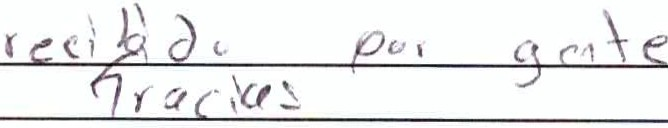 recibido por gente
Gracias